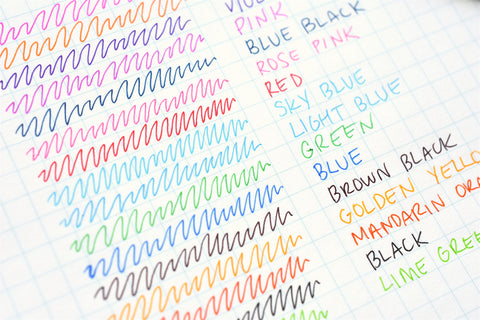 VIOL
PINK
BLUE BLACK
ROSE PINK
RED
SKY BLUE
LIGHT BLUE
GREEN
BLUE
BROWN BLACK
GOLDEN YELLO
MANDARIN ORA
BLACK
LIME GREE